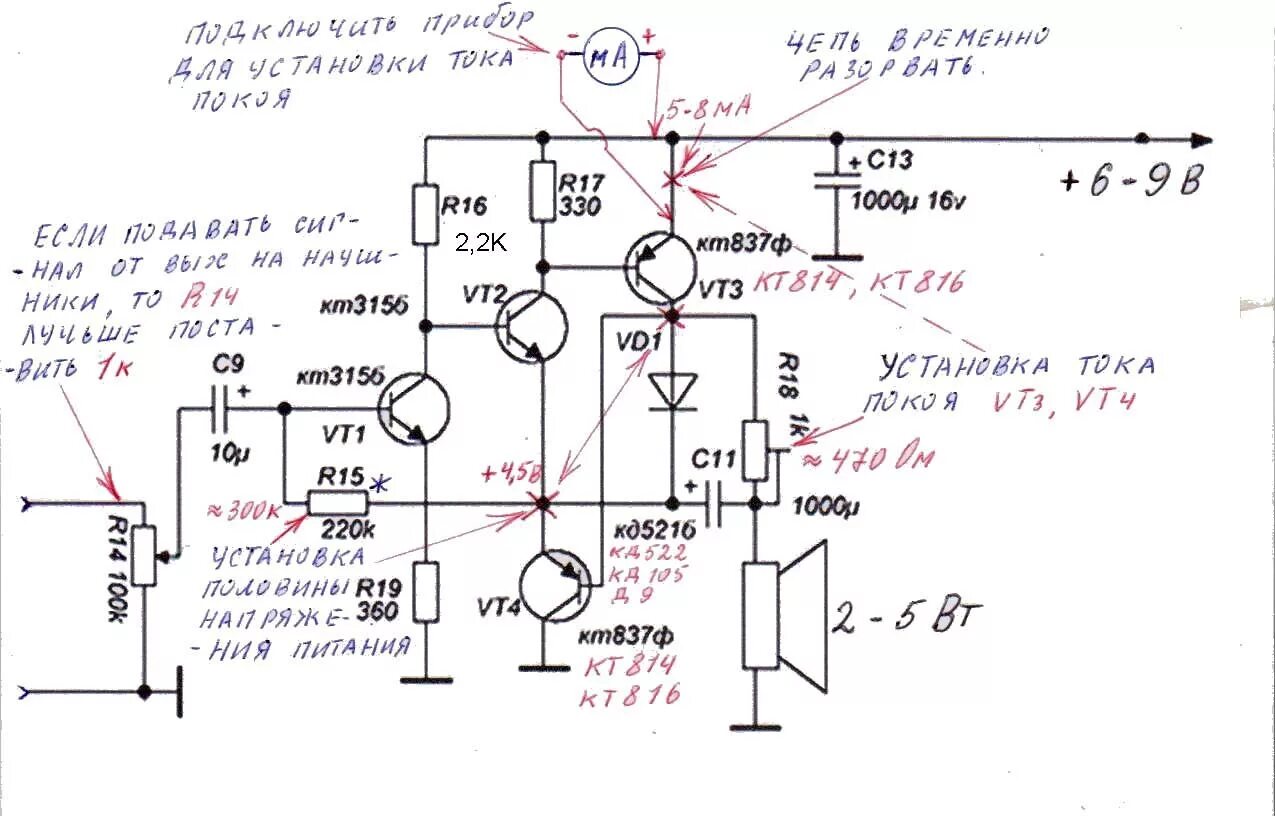 ПОДКЛЮЧИТЬ ПРИБОР
ДЛЯ УСТАНОВКИ ТОКА
ПОКОЯ
- мА +
ЦЕПЬ ВРЕМЕННО
РАЗОРВАТЬ.
5-8 мА
+ 6 - 9 В
+ C13
1000µ 16v
R16
2,2K
R17
330
кт837ф
VT3
КТ814, КТ816
ЕСЛИ ПОДАВАТЬ СИГ-
- НАЛ ОТ ВЫХ НА НАУШ-
НИКИ, ТО R14
ЛУЧЬШЕ ПОСТА -
- ВИТЬ 1к
кт315б
VT2
VD1
C9
+
10µ
кт315б
VT1
R18 1k
УСТАНОВКА ТОКА
ПОКОЯ VT3, VT4
≈ 470 Ом
R15 *
220k
≈ 300к
+4,5В
C11
+
1000µ
кд521б
КД522
КД105
Д9
R14 100k
УСТАНОВКА
ПОЛОВИНЫ
НАПРЯЖЕ-
- НИЯ ПИТАНИЯ
R19
360
VT4
кт837ф
КТ814
КТ816
2 - 5 Вт